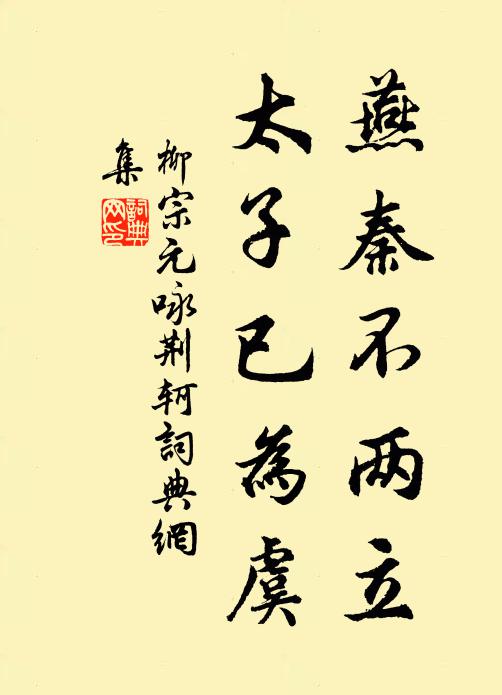 燕秦不两立
太子已為虞
柳宗元咏荆軻詞典網
集
詞典
网印